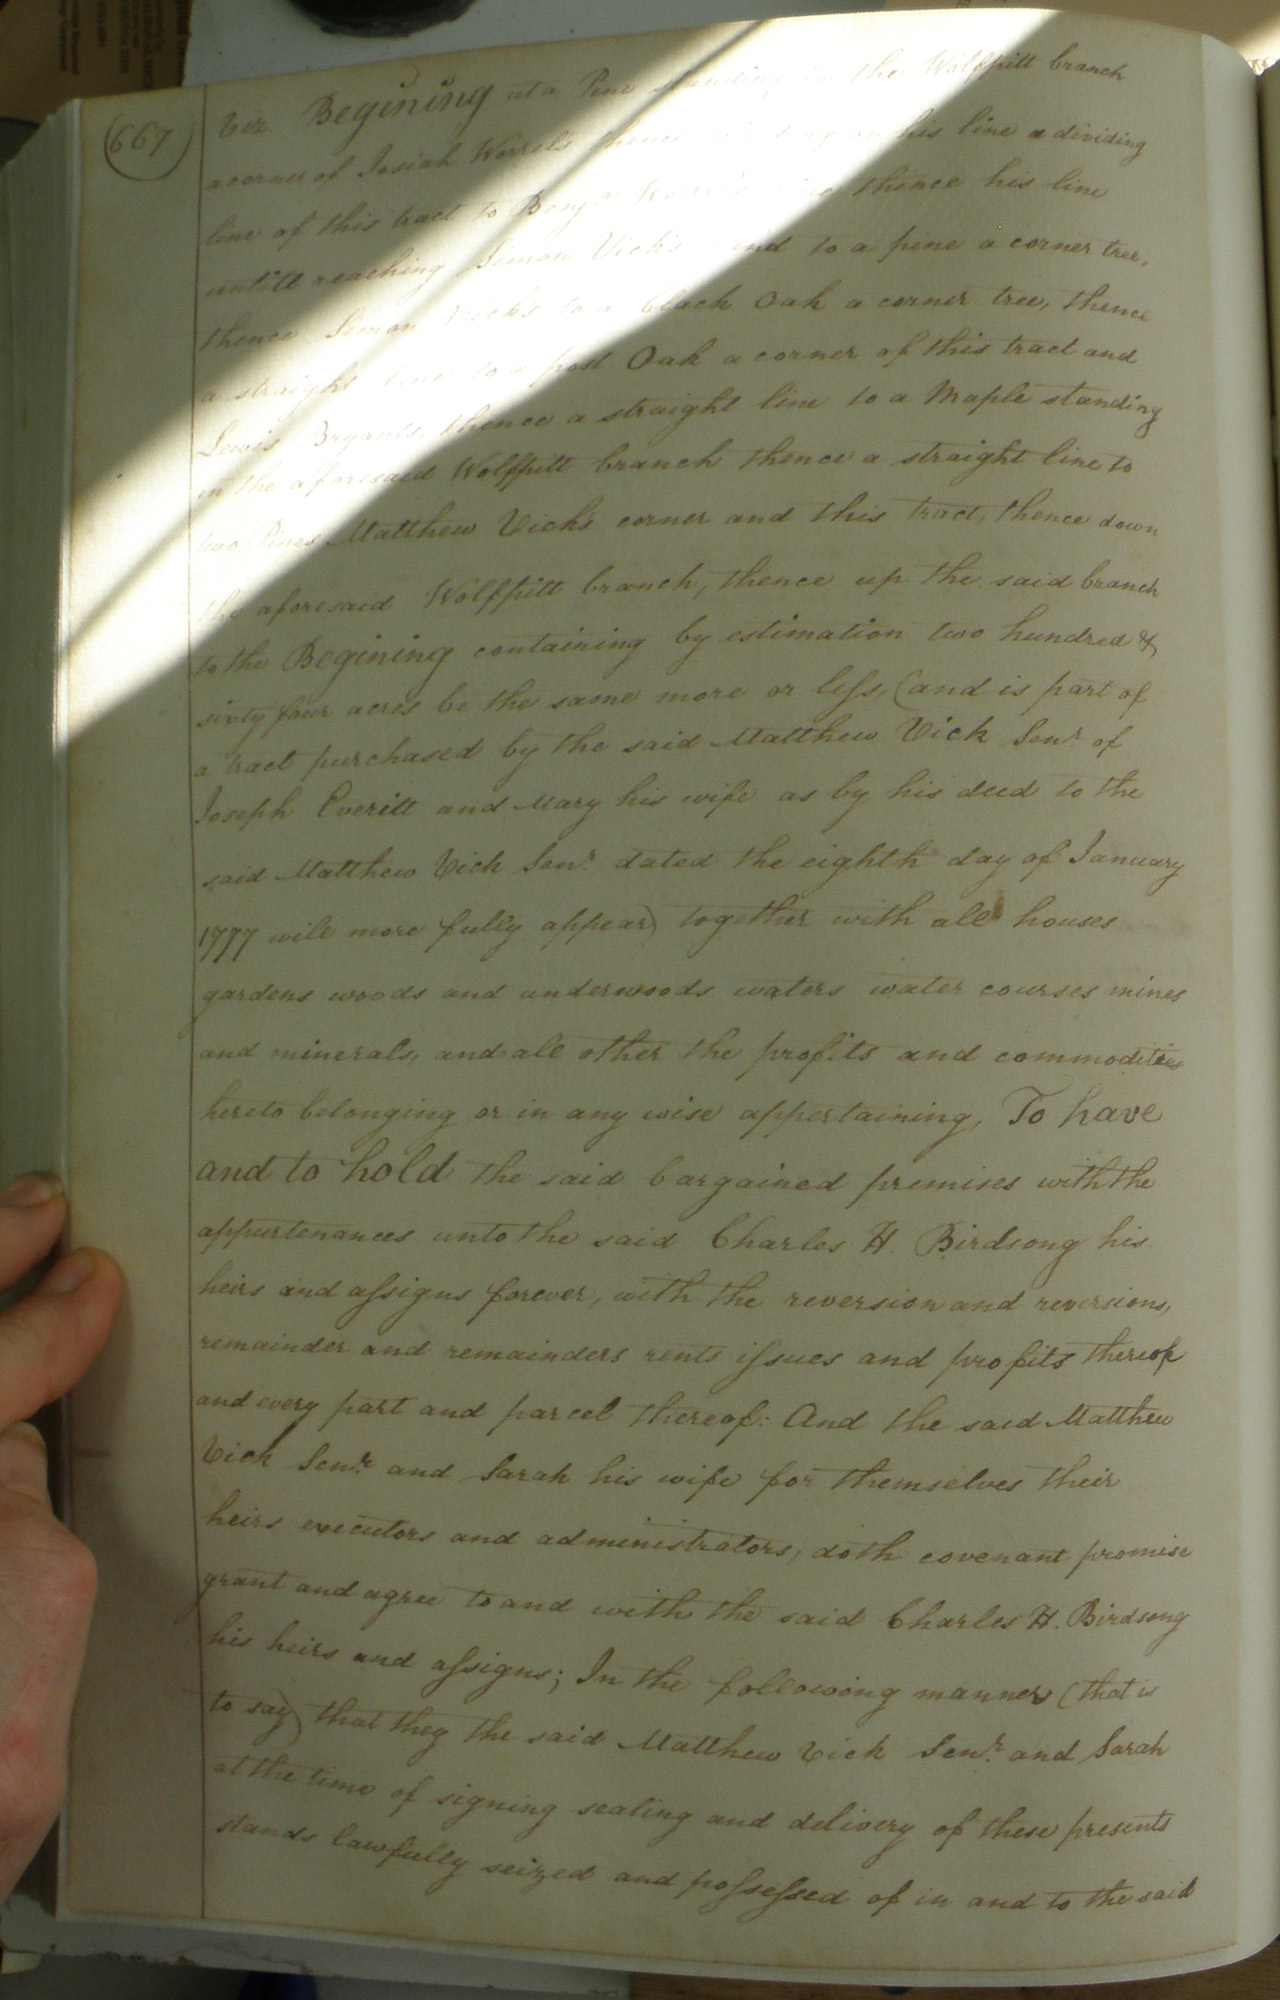 667
viz Begining at a Pine standing in the Wolfpitt branch
a corner of Josiah Worrels thence binding on his line a dividing
line of this tract to line thence his line
untill reaching Simon Vick's and to a pine a corner tree,
thence Simon Vicks to a black Oak a corner tree, thence
a straight line to a post Oak a corner of this tract and
Lewis Bryants, thence a straight line to a Maple standing
in the aforesaid Wolfpitt branch thence a straight line to
two Pines Matthew Vick's corner and this tract, thence down
the aforesaid Wolfpitt branch, thence up the said branch
to the Begining containing by estimation two hundred &
sixty four acres be the same more or less, (and is part of
a tract purchased by the said Matthew Vick Senr of
Joseph Everitt and Mary his wife as by his deed to the
said Matthew Vick Senr. dated the eighth day of January
1777 will more fully appear) together with all houses
gardens woods and underwoods waters water courses mines
and minerals, and all other the profits and commodities
hereto belonging or in any wise appertaining, To have
and to hold the said bargained premises with the
appurtenances unto the said Charles H. Birdsong his
heirs and assigns forever, with the reversion and reversions,
remainder and remainders rents issues and profits thereof
and every part and parcel thereof: And the said Matthew
Vick Senr. and Sarah his wife for themselves their
heirs executors and administrators, doth covenant promise
grant and agree to and with the said Charles H. Birdsong
his heirs and assigns; In the following manner (that is
to say) that they the said Matthew Vick Senr. and Sarah
at the time of signing sealing and delivery of these presents
stands lawfully seized and possessed of in and to the said